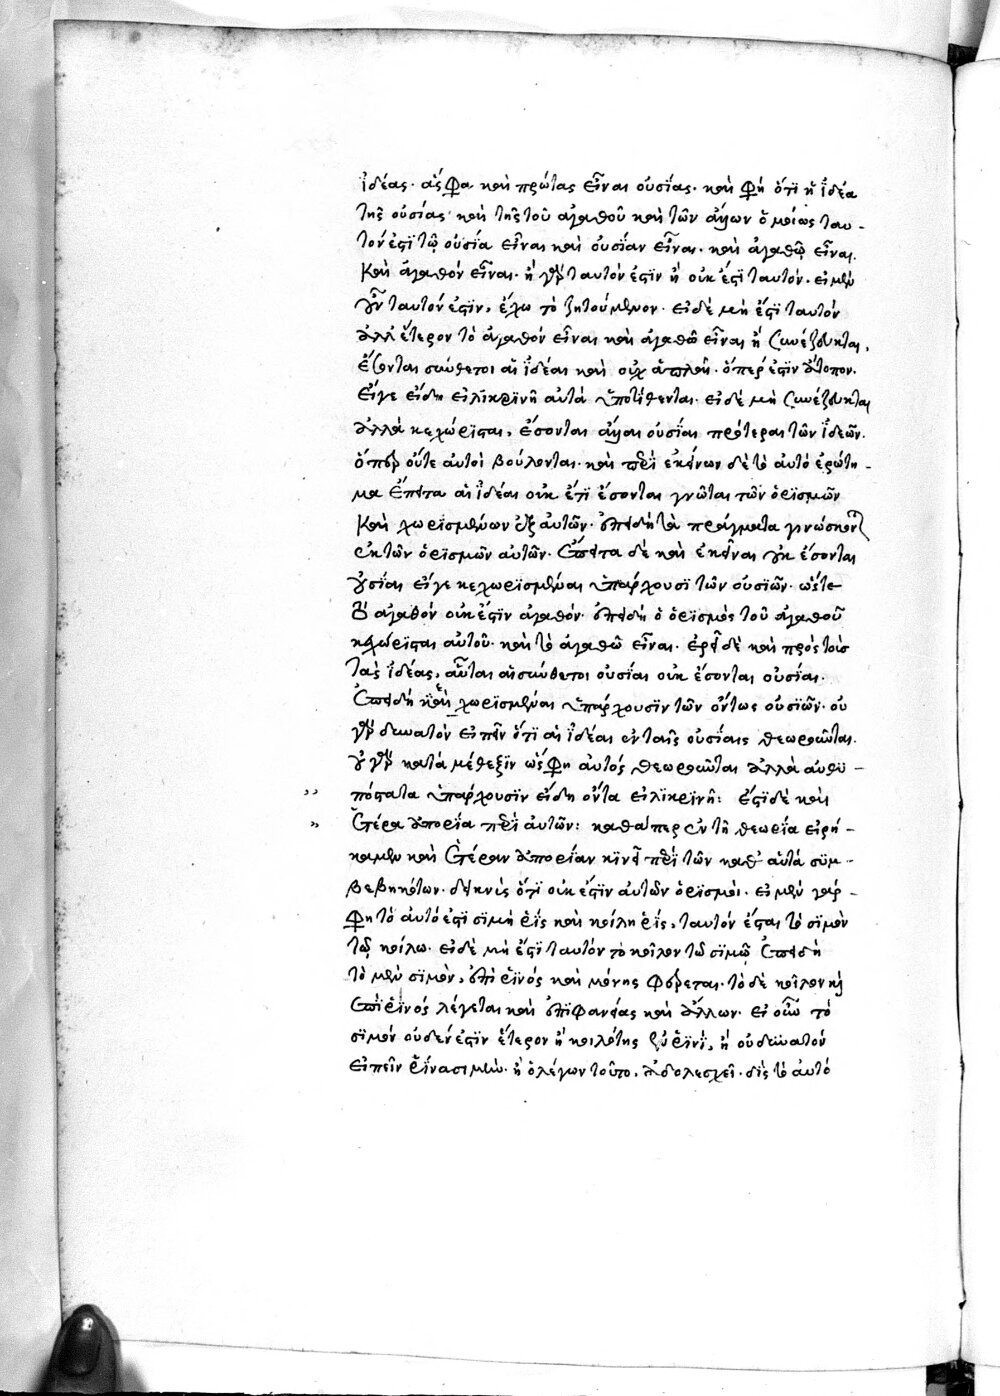 ἰδέας. ἅς φα καὶ πρώτας εἶναι οὐσίας. καὶ φὴ ὅτι ἡ ἰδέα
τῆς οὐσίας καὶ τῆς τοῦ ἀγαθοῦ καὶ τῶν ἄλλων ὁμοίως ταυ-
τόν ἐστι τῷ οὐσία εἶναι καὶ οὐσίαν εἶναι. καὶ ἀγαθῷ εἶναι.
καὶ ἀγαθὸν εἶναι. ἢ γὰρ ταυτόν ἐστιν ἢ οὐκ ἔστι ταυτόν. εἰ μὲν
οὖν ταυτόν ἐστιν, ἔχω τὸ ζητούμενον. εἰ δὲ μὴ ἔστι ταυτὸν
ἀλλ' ἕτερον τὸ ἀγαθὸν εἶναι καὶ ἀγαθῶ εἶναι ἢ συνέζευκται,
ἔσονται σύνθετοι αἱ ἰδέαι καὶ οὐχ ἁπλαῖ. ὅπερ ἐστὶν ἄτοπον.
εἴγε εἴδη εἰλικρινῆ αὐτὰ ὑποτίθενται. εἰ δὲ μὴ συνέζευκται
ἀλλὰ κεχώρισται, ἔσονται ἄλλαι οὐσίαι πρότεραι τῶν ἰδεῶν.
ὅπερ οὔτε αὐτοὶ βούλονται. καὶ περὶ ἐκείνων δὲ τὸ αὐτὸ ἐρώτη-
μα ἔπειτα αἱ ἰδέαι οὐκ ἔτι ἔσονται γνῶται τῶν ὁρισμῶν
καὶ χωρισμένων ἐξ αὐτῶν. ἐπειδὴ τὰ πράγματα γινώσκοντ
ἐκ τῶν ὁρισμῶν αὐτῶν. ἔπειτα δὲ καὶ ἐκεῖναι οὐκ ἔσονται
οὐσίαι εἴγε κεχωρισμέναι ὑπάρχουσι τῶν οὐσιῶν. ὥστε
τὸ ἀγαθὸν οὐκ ἔστιν ἀγαθόν. ἐπειδὴ ὁ ὁρισμὸς τοῦ ἀγαθοῦ
κεχώρισται αὐτοῦ. καὶ τὸ ἀγαθῶ εἶναι. ἐρεῖ δὲ καὶ πρὸς τοῖς
τὰς ἰδέας, αὗται αἱ σύνθετοι οὐσίαι οὐκ ἔσονται οὐσίαι.
ἐπειδὴ χωρισμέναι ὑπάρχουσιν τῶν ὄντως οὐσιῶν. οὐ
γὰρ δυνατὸν εἰπεῖν ὅτι αἱ ἰδέαι ἐν ταῖς οὐσίαις θεωροῦνται.
οὐ γὰρ κατὰ μέθεξιν ὥς φη αὐτὸς θεωροῦνται ἀλλὰ αὐθυ-
πόστατα ὑπάρχουσιν εἴδη ὄντα εἰλικρινῆ: ἔστι δὲ καὶ
ἑτέρα ἀπορία περὶ αὐτῶν: καθάπερ ἐν τῇ θεωρία εἰρή-
καμεν καὶ ἑτέραν ἀπορίαν κινεῖ περὶ τῶν καθ' αὑτὰ συμ-
βεβηκότων. δεικνὺς ὅτι οὐκ ἔστιν αὐτῶν ὁρισμοί. εἰ μὲν γάρ-
φη τὸ αὐτό ἐστι σιμὴ ῥὶς καὶ κοίλη ῥίς, ταυτὸν ἔσται τὸ σιμὸν
τῷ κοίλω. εἰ δὲ μὴ ἔστι ταυτὸν τὸ κοῖλον τῶ σιμῷ ἐπειδὴ
τὸ μὲν σιμὸν, ἐπὶ ῥινὸς καὶ μόνης φέρεται. τὸ δὲ κοῖλον καὶ
ἐπὶ ῥινὸς λέγεται καὶ ἐπιφανείας καὶ ἄλλων. εἰ οὖν τὸ
σιμὸν οὐδέν ἐστιν ἕτερον ἢ κοιλότης ἐν ῥινὶ, ἢ οὐ δυνατὸν
εἰπεῖν ῥῖνα σιμὴν. ἢ ὁ λέγων τοῦτο, ἀδολεσχεῖ. δὶς τὸ αὐτὸ